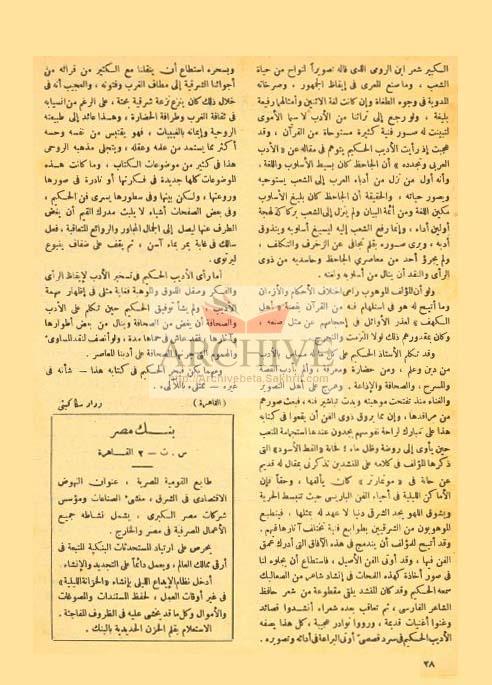 السكبير شعر ابن الرومى الذى قاله تصويراً لنواح من حياة
الشعب ، وما صنع العرى فى إيقاظ الجمهور ، وصرخاته
المدوية فى وجوه الطغاة وإن كانت لغة الاثنين وأمثالهما رفيعة
بليغة ، ولو رجع إلى تراثنا من الأدب لا سيما الأموى
لتبينت له صور فنية كثيرة مستوحاة من القرآن ، وقد
عجبت إذ رأيت الأديب الحكيم يتوهم فى مقاله عن « الأدب
العربى وتجدده » أن الجاحظ كان بسيط الأسلوب واللغة ،
وأنه أول من نزل من أدباء العرب إلى الشعب يستوحيه
ويصور حياته ، والحقيقة أن الجاحظ كان بليغ الأسلوب
مكين اللغة ومن أئمة البيان ولم ينزل إلى الشعب بركاكة لهجة
أولين أداء ، وإنما رفع الشعب إليه ليسيغ أسلوبه ويتذوق
أدبه ، ويرى صوره بقلم تجافى عن الزخرف والتكلف ،
ولم يجرؤ أحد من معاصرى الجاحظ وحاسديه من ذوى
الرأى والنقد أن ينال من أسلوبه ولغته .
ولو أن المؤلف الموهوب راعى اختلاف الأحكام والأزمان
وما أتيح له هو فى استلهام فنه من القرآن بقصة « أهل
الكهف » لعذر الأوائل فى إحجامهم عن مثل صنعه ،
وكان بمقدورهم ذلك لولا التزمت والتحرج .
وقد تكلم الأستاذ الحكيم على كل ماله مساس بالأدب
من دين وعلم ، ومن حضارة ومعرفة ، ولم ينس أدب القصة
والمسرح ، والصحافة والإذاعة . وعرج على تأثير فنه
والغناء منذ تفتحت موهبته وبدت تباشير فنه ، فبعث صورهم
من مراقدها ، وإن مما يروق ذوى الفن أن يقعوا فى كتابه
هذا على تبارك لراحة نفوسهم يجدون عندها استجمامة المتعب
حين يأوى إلى روضة وظل ماء ! لحانة « القط الأسود » التى
ذكرها المؤلف فى كلامه على المنشدين تذكرنى بمقال له قديم
عن حانة فى « مونمارتر » كان يألفها ، وحقاً فإن
الأماكن الليلية فى أحياء الفن الباريسى حيث تنبسط الحرية
ويشرق اللهو يجد الشرقى دنيا لا عهد له بمثلها ، فينطبع
الموهوبون من الشرقيين بطوابع فنية تختلف آثارها فيهم .
وقد أتيح للمؤلف أن يندمج فى هذه الآفاق التى أدرك عمق
الفن فيها ، وقد أوتى الفن الأصيل ، فاستطاع أن يجلوه لنا
فى صور أخاذة كهذه اللمحات فى إنشاد شاعر من الصعاليك
سمعه الحكيم وقد كان للمنشد يلقى مقطوعة من شعر حافظ
الشاعر الفارسى ، ثم تعاقب بعده شعراء أنشدوا قصائد
وغنوا أغنيات قديمة ، ورووا نوادر عجيبة ، كل هذا يصفه
الأديب الحكيم فى سرد قصصى أوتى البراعة فى أدائه وتصويره .
وبسحره استطاع أن ينقلنا مع الكثير من قرائه من
أجوائنا الشرقية إلى مطاف الغرب وفتونه ، والعجيب أنه فى
خلال ذلك كان ينزع نزعة شرقية بحتة ، على الرغم من انسيابه
فى ثقافة الغرب وطرافة الحضارة ، وهذا عائد إلى طبيعته
الروحية وإيمانه بالغيبيات ، فهو يقتبس من نفسه وحسه
أكثر مما يستمد من علمه وعقله ، ويتجلى مذهبه الروحى
هذا فى كثير من موضوعات الكتاب ، وما كانت هذه
الموضوعات كلها جديدة فى فكرتها أو نادرة فى صورها
وروعتها ، ولكن بينها وفى سطورها يسرى فن الحكيم ،
وفى بعض الصفحات أشياء لا يلبث مدرك القيم أن يغض
الطرف عنها ليصل إلى الجمال المجاور والروائع المتعاقبة ، فعل
سالك فى غابة يمر بماء آسن ، ثم يقف على ضفاف ينبوع
ليرتوى .
أما رأى الأديب الحكيم فى تسخير الأدب لإيقاظ الرأى
والفكر وصقل الذوق والموهبة فغاية مثلى فى إظهار مهمة
الأديب ، ولم يشأ توفيق الحكيم حين تكلم على الأدب
والصحافة أن يغض من الصحافة وينال من بعض أطوارها
وآثارها ،
والصحف
ومهما يكن فبحر الحكيم فى كتابه هذا — شأنه فى
غيره — ممتلىء باللآلىء .
( القاهرة )
وداد سكاكينى
بنك مصر
س . ت — ٢ القاهرة
طابع القومية المصرية ، عنوان النهوض
الاقتصادى فى الشرق ، منشىء الصناعات ومؤسس
شركات مصر الكبرى ، يشمل نشاطه جميع
الأعمال المصرفية فى مصر والخارج .
يحرص على ارتياد المستحدثات البنكية المتبعة فى
أرقى ممالك العالم ، ويعمل دائماً على التجديد والإنشاء .
أدخل نظام الإيداع الليلى بإنشاء « الخزانة الليلية »
فى غير أوقات العمل ، لحفظ المستندات والمصوغات
والأموال وكل ما قد يخشى عليه فى الظروف المفاجئة .
الاستعلام بقلم الخزن الحديدية بالبنك .
٣٨
ARCHIVE
http://Archivebeta.Sakhrit.com